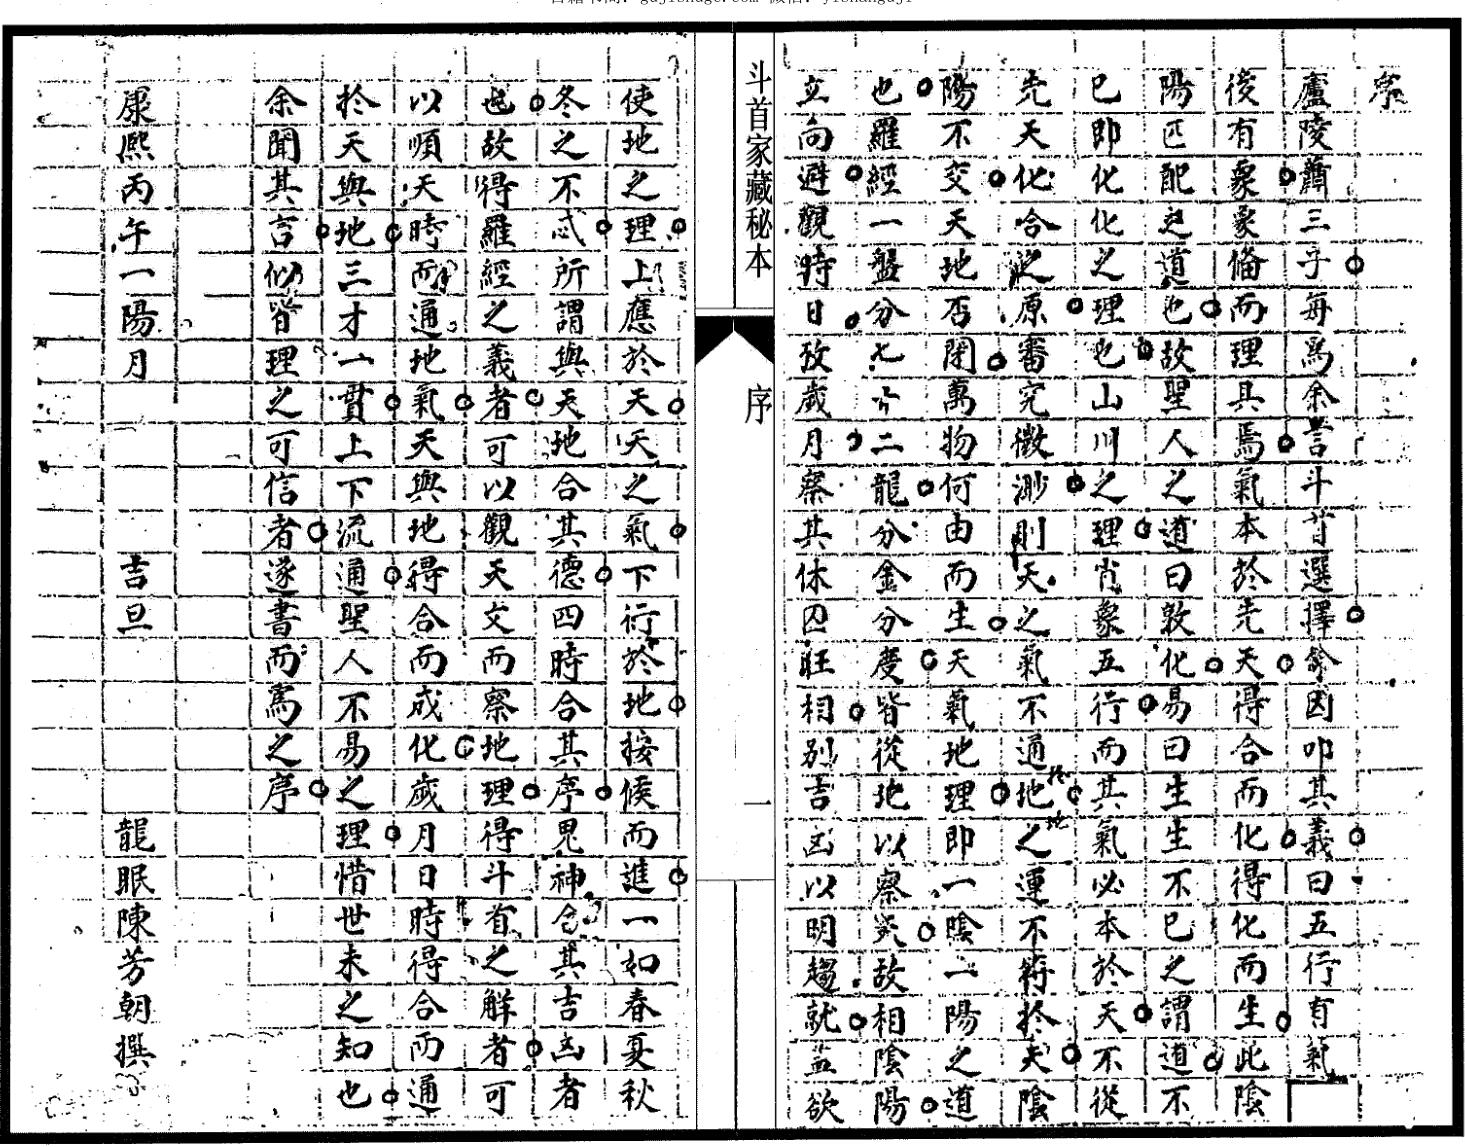 序
廬陵蕭三子每爲余言斗首選擇余因叩其義曰五行有氣
後有象象備而理具焉氣本於先天得合而化得化而生此陰
陽匹配之道也故聖人之道曰敦化易曰生生不已之謂道不
已即化化之理也山川之理肖象五行而其氣必本於天不從
先天化合之原審究微渺則天之氣不通於地地之運不符於天陰
陽不交天地否閉萬物何由而生天氣地理即一陰一陽之道
也羅經一盤分七十二龍分金分度皆從地以察天故相陰陽
立向避觀時日攷歲月察其休囚旺相別吉凶以明趨就蓋欲
斗首家藏秘本
序
一
使地之理上應於天天之氣下行於地按候而進一如春夏秋
冬之不忒所謂與天地合其德四時合其序鬼神合其吉凶者
也故得羅經之義者可以觀天文而察地理得斗首之解者可
以順天時而通地氣天與地得合而成化歲月日時得合而通
於天與地三才一貫上下流通聖人不易之理惜世未之知也
余聞其言似皆理之可信者遂書而爲之序
康熙丙午一陽月 吉旦 龍眠陳芳朝撰